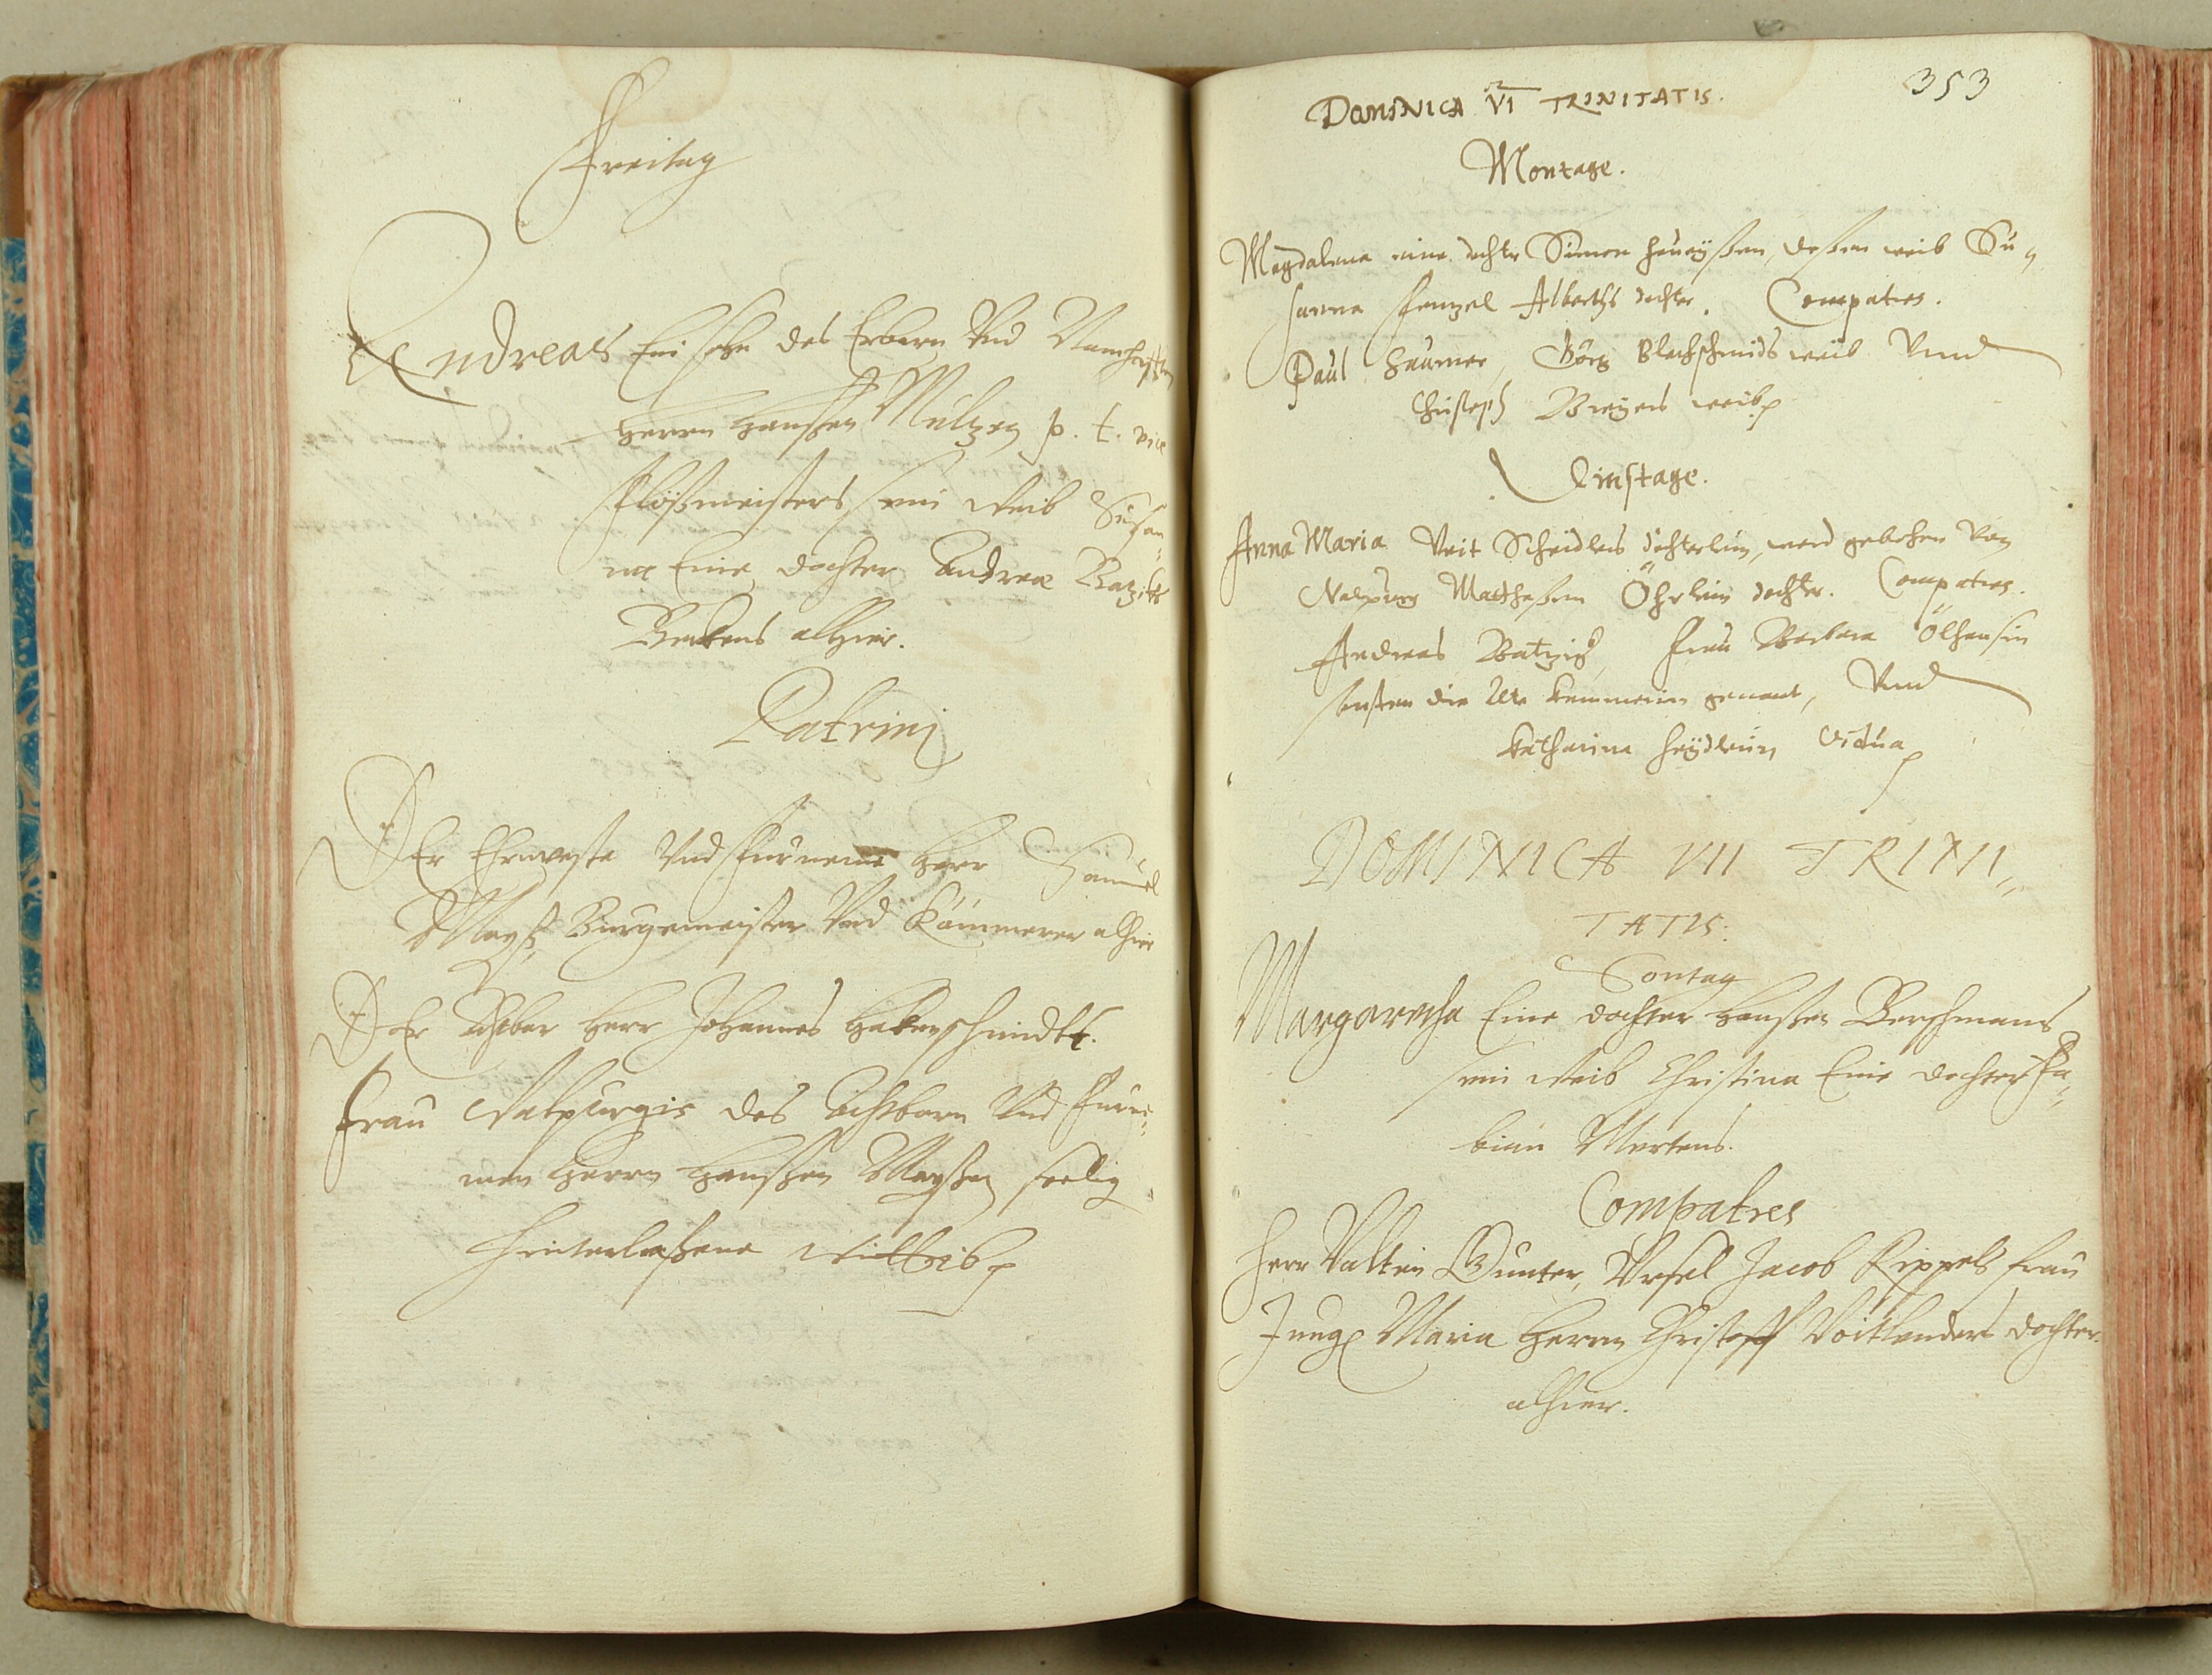 Freitag
Andreas Ein sohn des Erbarn Vnd Namhafften
Herrn Hanßen Mulzen p. t. vice
Flößmeisters sein Weib Susan=
na Eine dochter Andreæ Bazigs
Beckens alhier.
Patrini
Der Ehrnveste Vnd Furneme Herr Samuel
Mayß, Burgemeister Vnd Kämmerer alhier
Der Achtbar Herr Johannes Hakenschmidtt.
Frau Walpurgis des Achtbarn Vnd Furne=
men Herrn Hanßen Mayßen seelig
hinterlaßene Wittib
353
DOMINICA VI TRINITATIS.
Montage.
Magdalena eine dochter Simon deßen weib Su=
sanna Alberths dochter. Compatres.
Paul Görg Blechschmids weib Vnnd
Christoph weib
Dinstage.
Anna Maria Veit Scheidlers döchterlein, ward gebohren Von
Walpurg Matthesen Öhrlein dochter. Compatres.
Andreas Batzig, Frau Barbara
sonsten die Alte genant, Vnnd
Katharina Heydlerin Vidua
DOMINICA VII TRINI=
TATIS.
Sontag
Margaretha Eine dochter Hanßen Berchmans
sein Weib Christina Eine dochter Fa=
bian Mertens.
Compatres
Herr Valtin Gunter, Vrsel Jacob Rippels Frau
Jungf Maria Herrn Christoff Voitlenders dochter.
alhier.